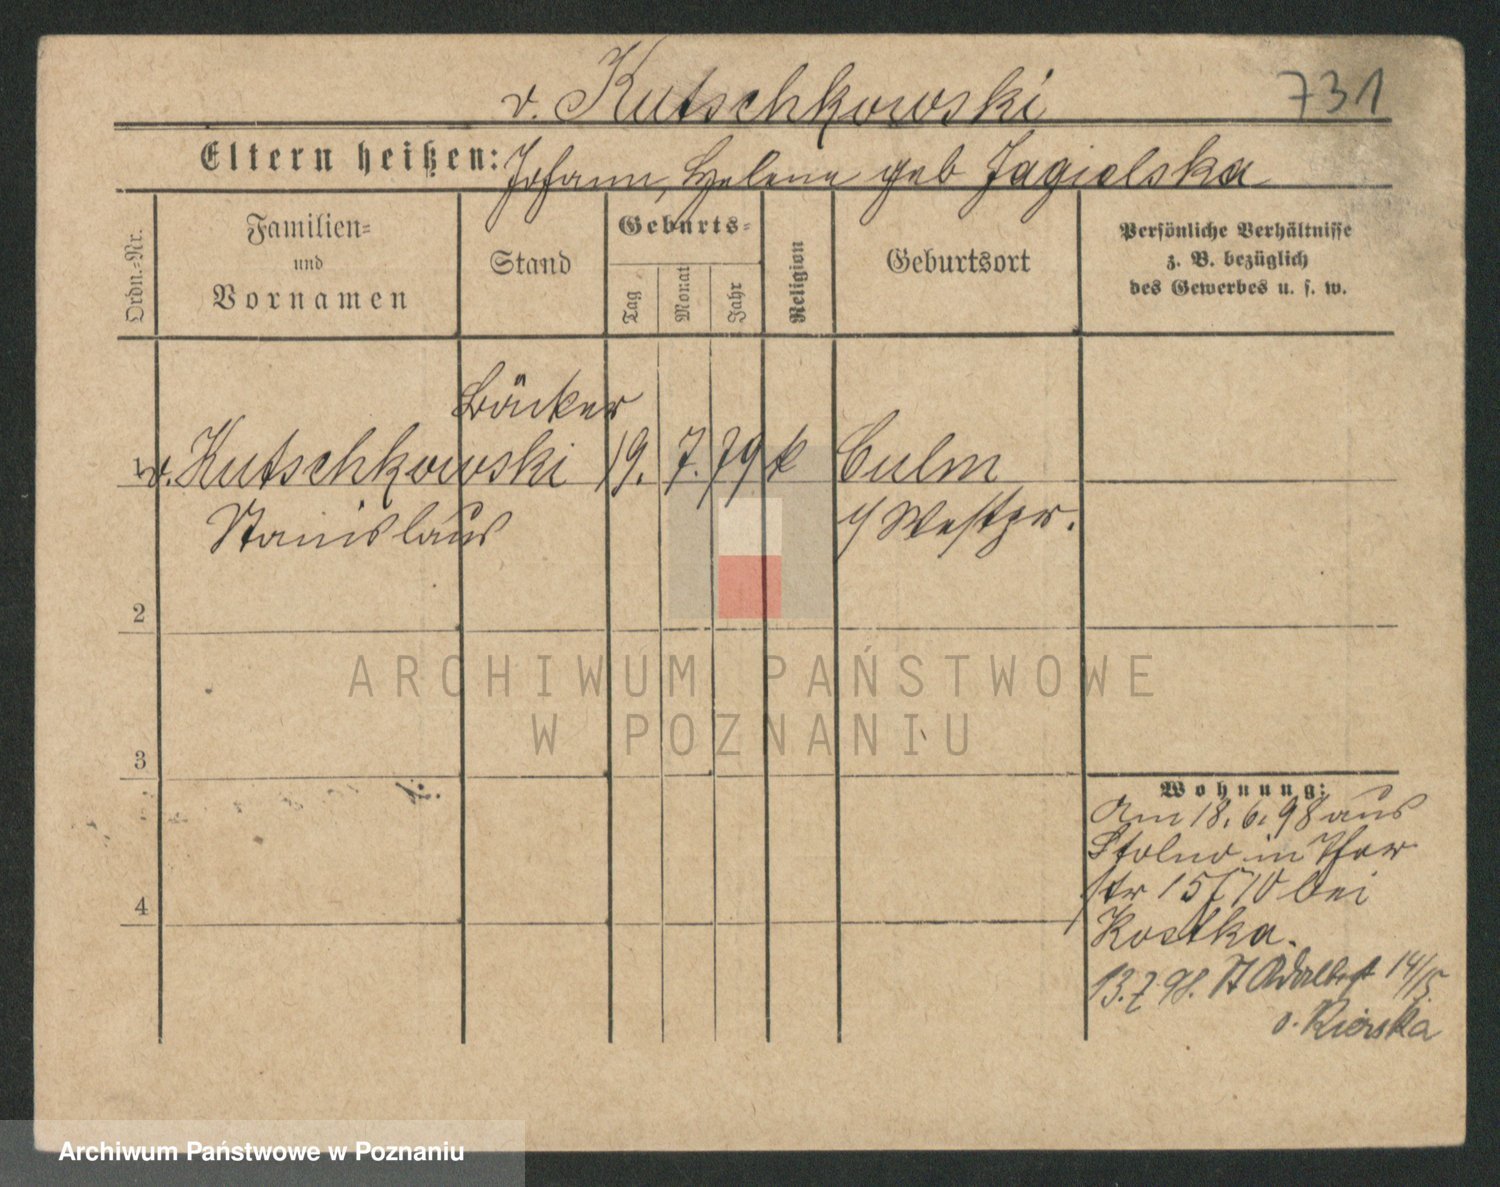 v. Kutschkowski 731
Eltern heißen: Johann, Helene geb Jagielska
Ordn.=Nr.
Familien=
und
Vornamen
Stand
Geburts=
Tag
Monat
Jahr
Religion
Geburtsort
Persönliche Verhältnisse
z. B. bezüglich
des Gewerbes u. s. w.
Bäcker
1 v. Kutschkowski 19. 7. 79 k Culm
Stanislaus i/ Westpr.
2
ARCHIWUM PAŃSTWOWE
W POZNANIU
3
4
Wohnung:
Am 18. 6. 98 aus
Stolno in Thor
str 15/70 bei
Kostka.
13.7.98. St Adalbert 14/15
Archiwum Państwowe w Poznaniu